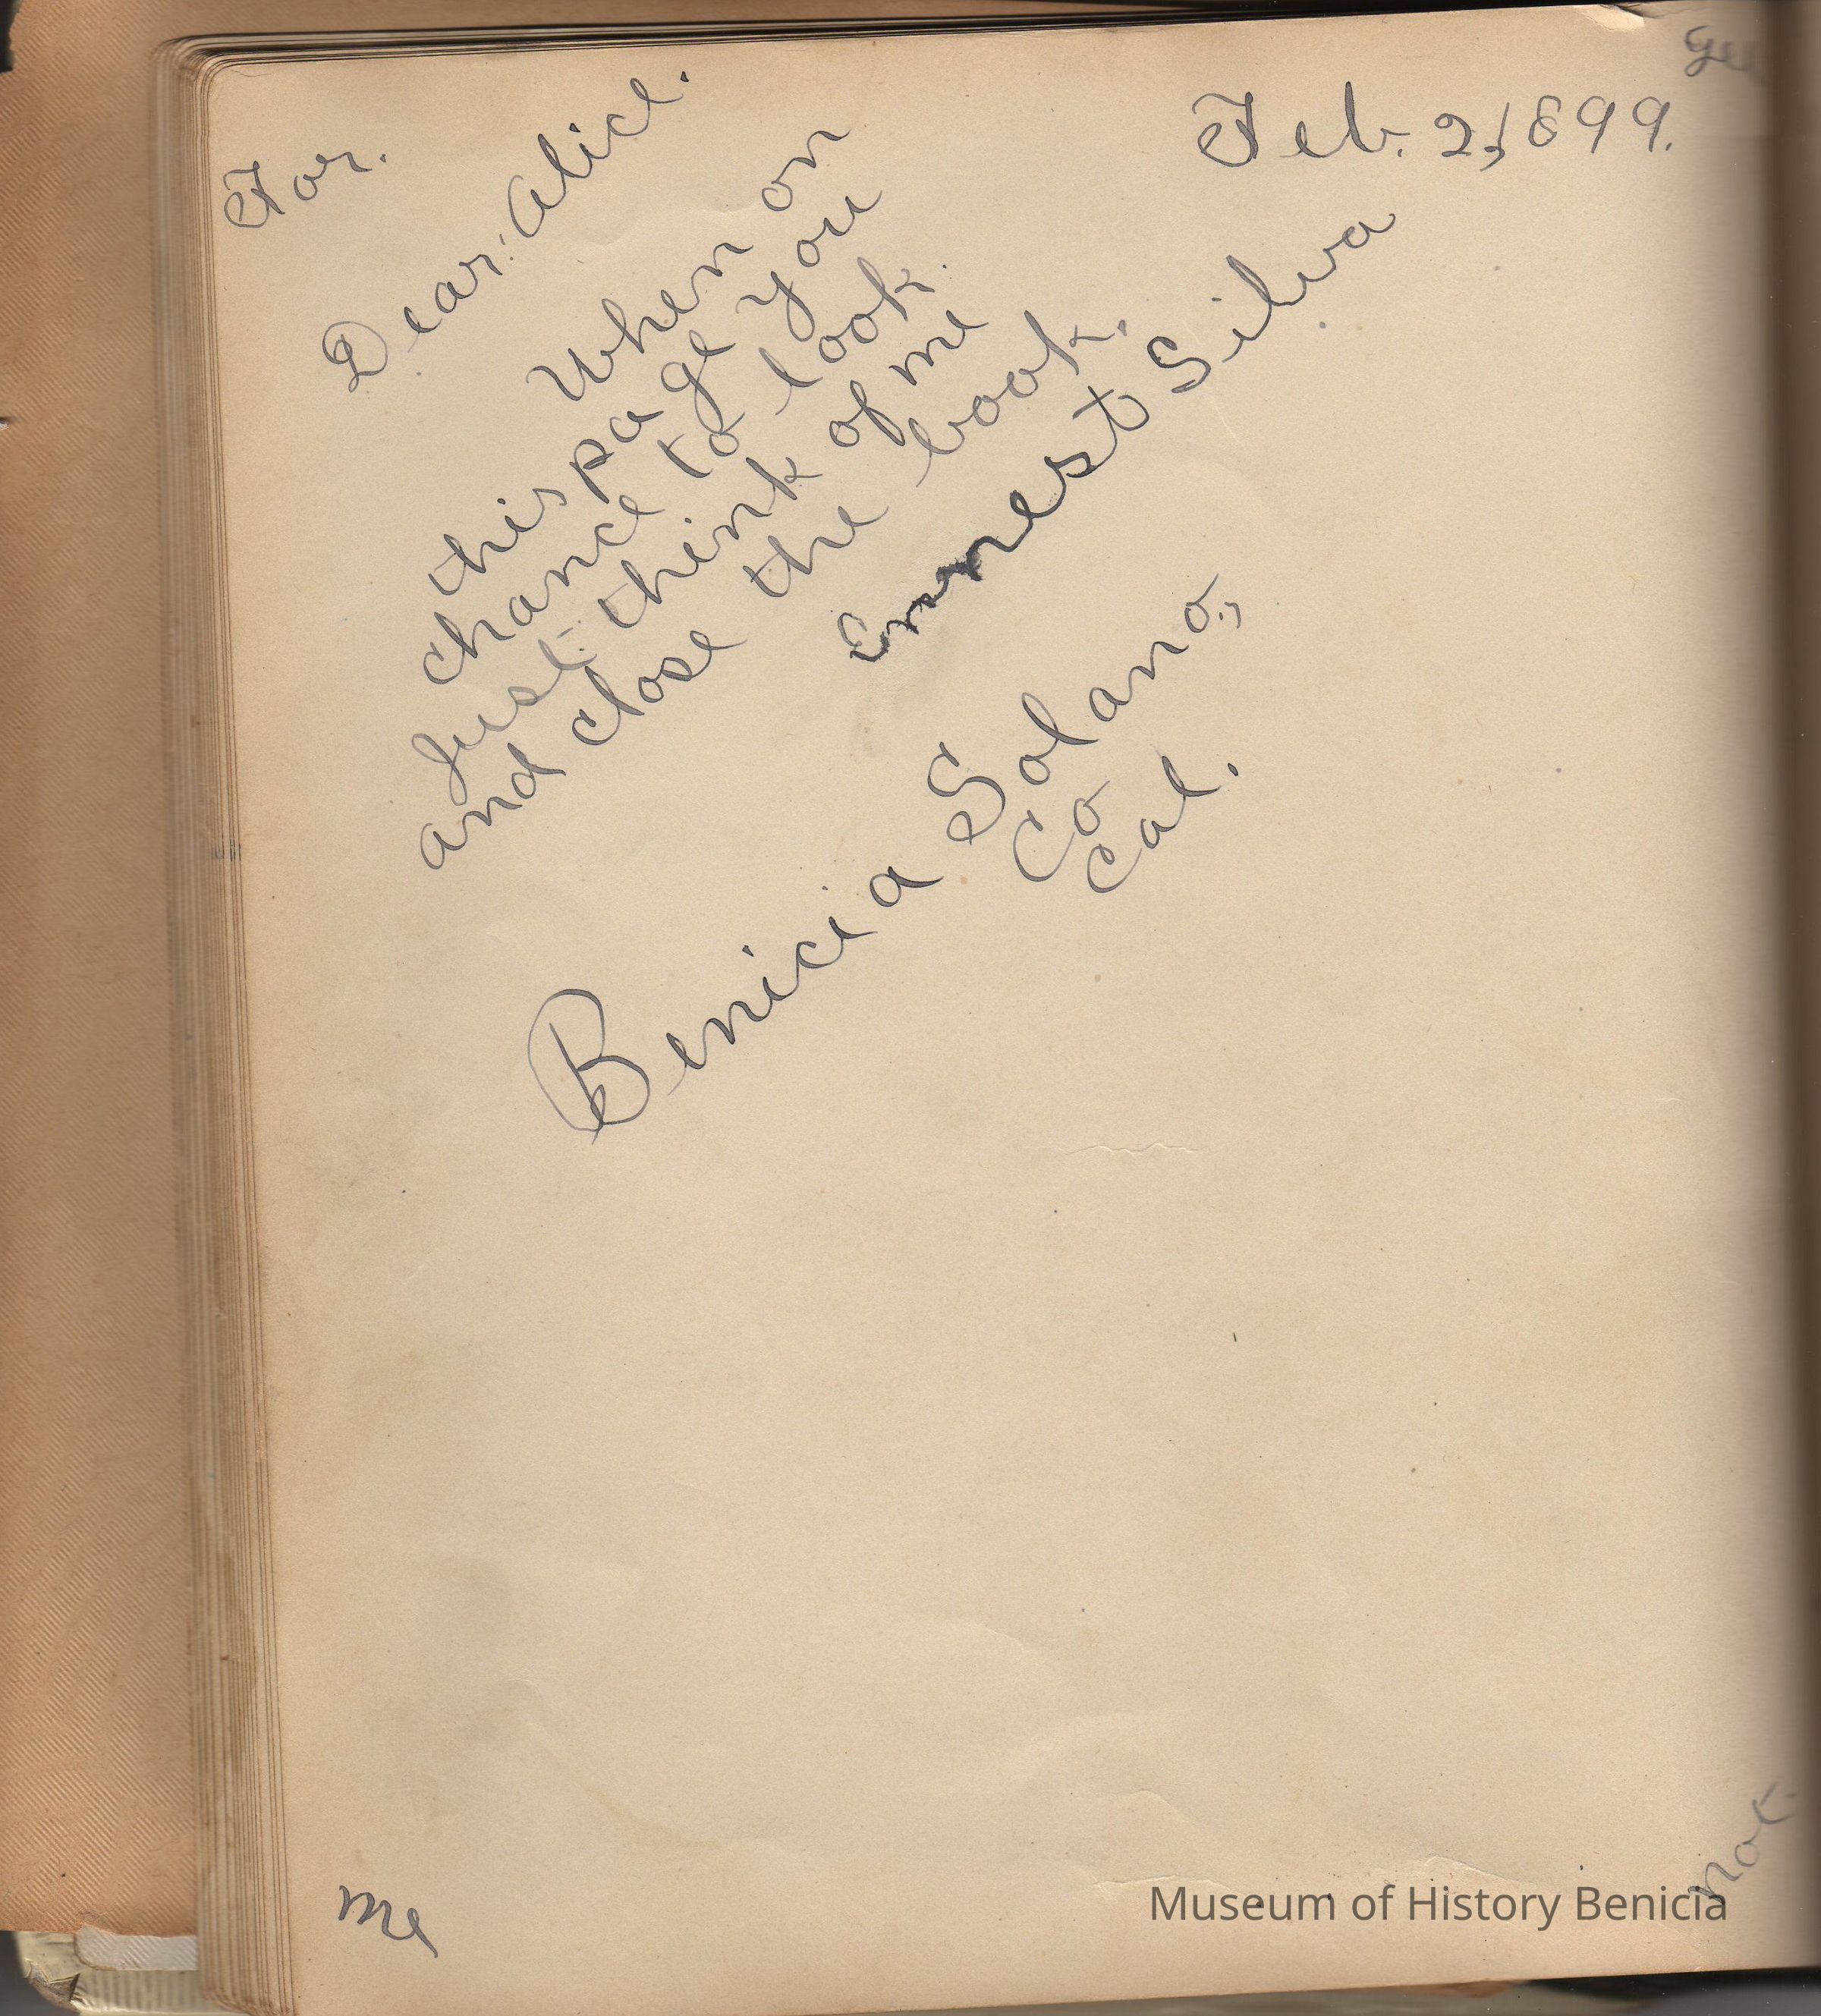 For.
Feb. 2, 1899.
Dear. Alice.
When on
this page you
chance to look.
Just think of me
and close the book.
Ernest Silva
Benicia Solano,
Co
Cal.
me
not
Museum of History Benicia